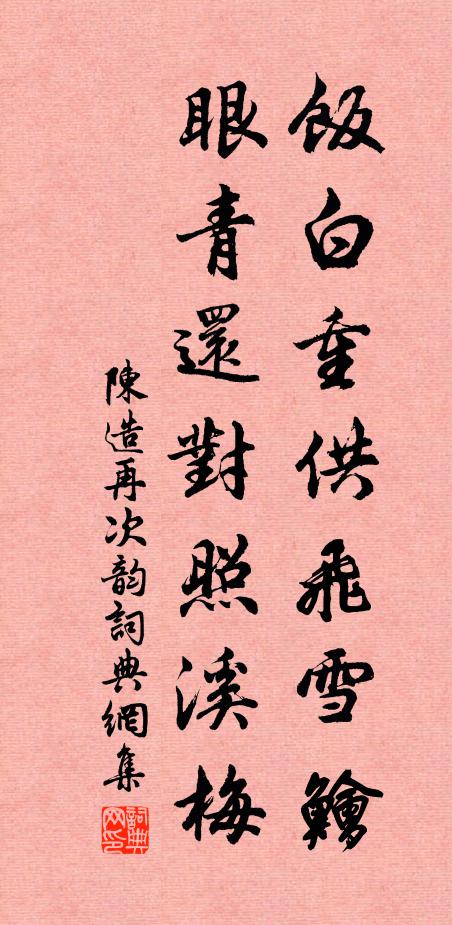 飯白重供飛雪鱠
眼青還對照溪梅
陳造再次韵詞典網集
詞典網印